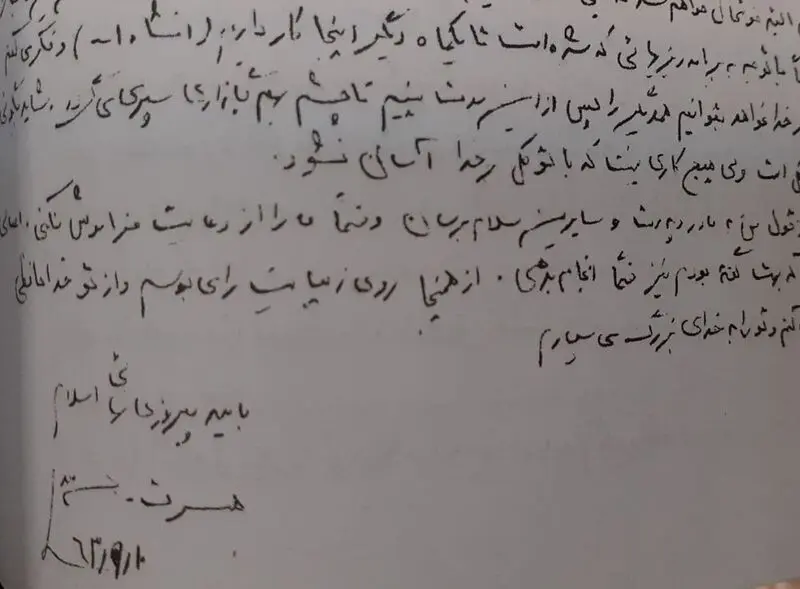 البته خوشحال خواهم شد
با توجه به برنامه‌ریزیهائی که شده است تا یکماه دیگر اینجا کار داریم (انشاءا...) و فکر می‌کنم
خدا خواهد بتوانیم همدیگر را پس از این مدت ببینیم تا چشم بهم بگذاری سپری می‌گردد. شاید بگوئی
است ولی هیچ کاری نیست که با توکل بر خدا آسان نشود.
قول من به مادر و پدرت و سایرین سلام برسان و ضمناً ما را از دعایت فراموش نکنی.
که بهت گفته بودم نیز حتماً انجام بدهی. از همینجا روی زیبایت را می‌بوسم و از تو خداحافظی
می‌کنم و تو را به خدای بزرگ می‌سپارم
بامید پیروزی نهائی اسلام
همسرت
۶۳/۹/۱۰